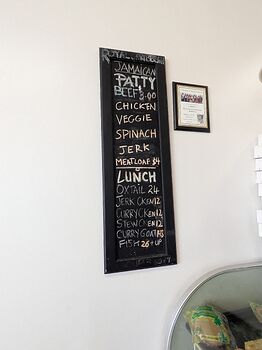 JAMAICAN
PATTY
BEEF 3.00
CHICKEN
VEGGIE
SPINACH
JERK
MEATLOAF $4
LUNCH
OXTAIL 24
JERK CKEN 12
CURRY CKEN 12
STEW CKEN 12
CURRY GOAT
FISH 26 + UP